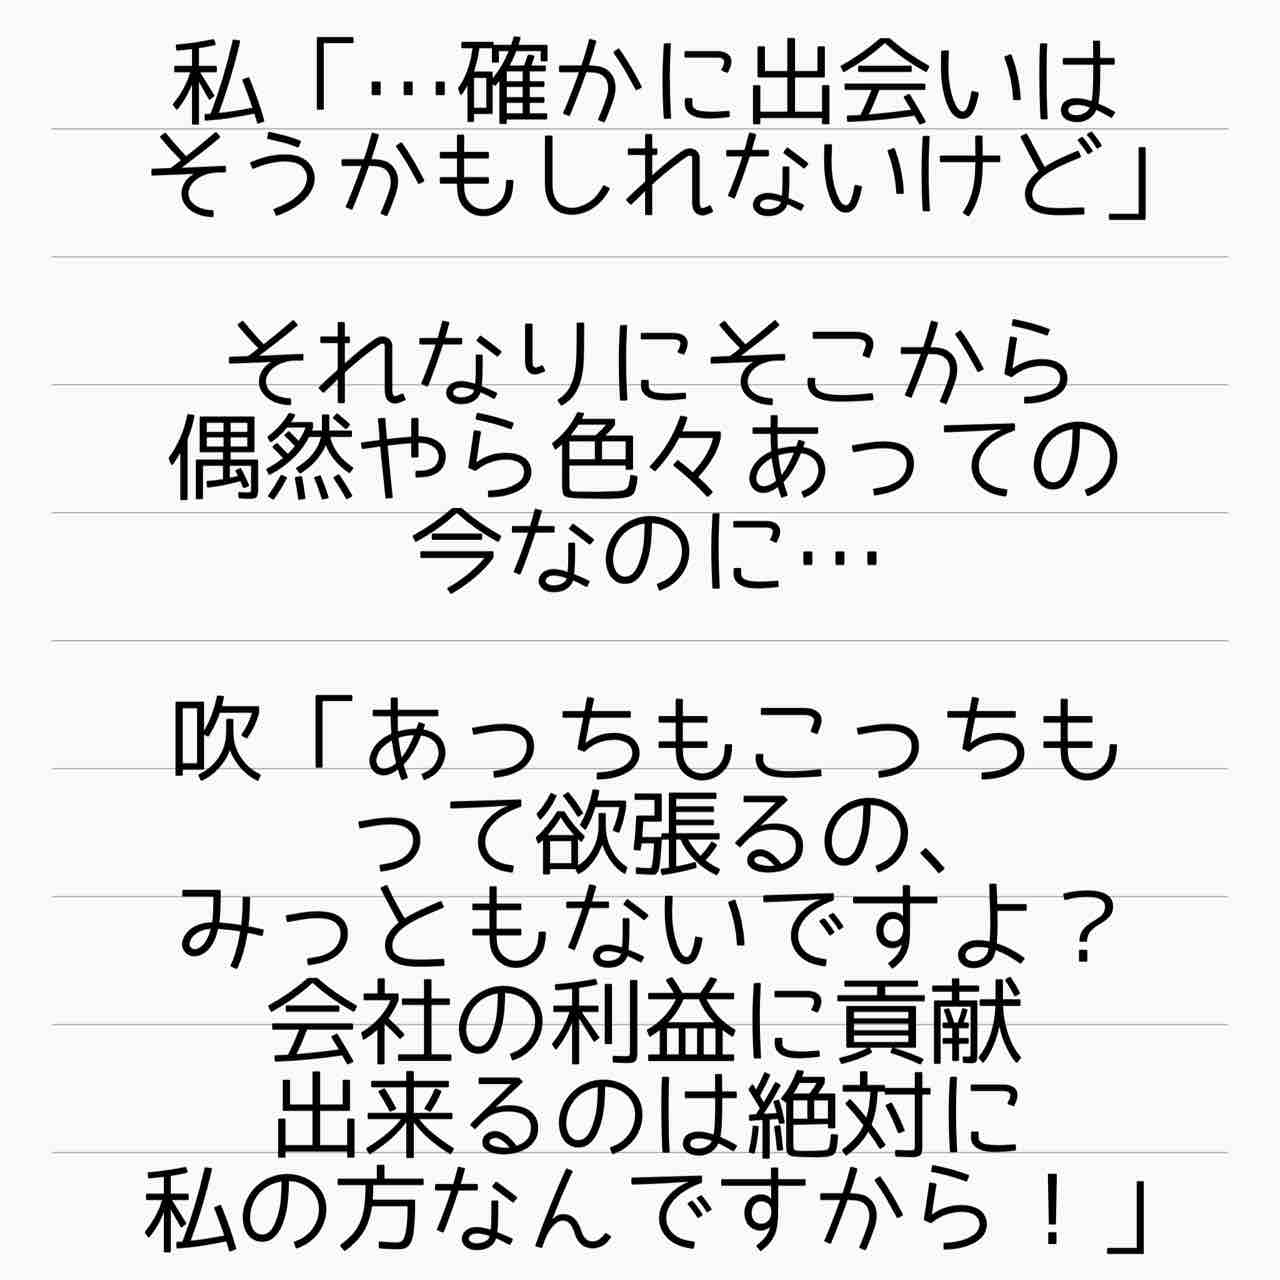 私「…確かに出会いは
そうかもしれないけど」
それなりにそこから
偶然やら色々あっての
今なのに…
吹「あっちもこっちも
って欲張るの、
みっともないですよ？
会社の利益に貢献
出来るのは絶対に
私の方なんですから！」